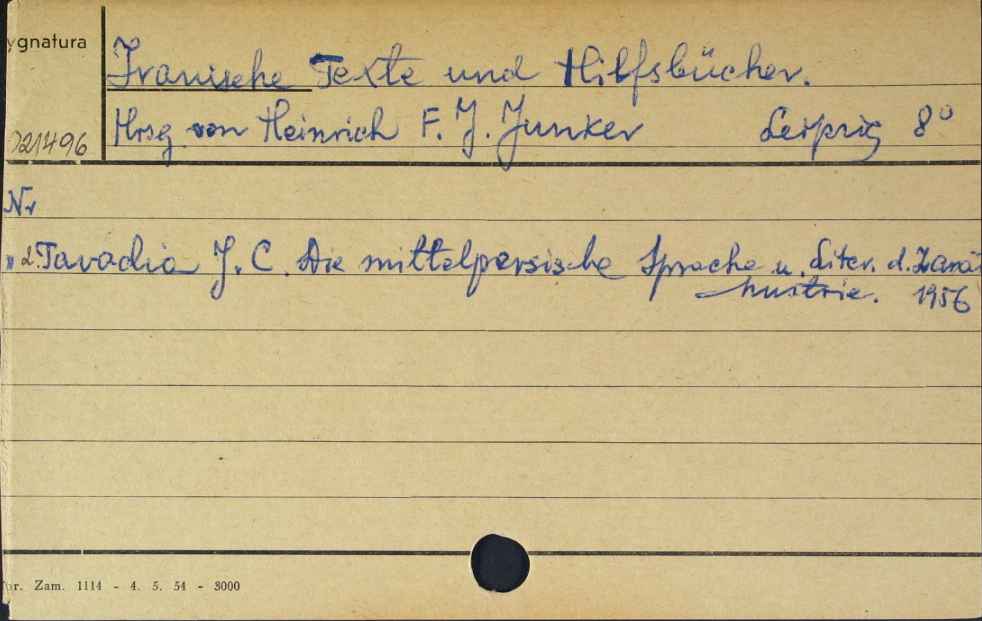 ygnatura
Iranische Texte und Hilfsbücher.
Hrsg von Heinrich F. J. Junker Leipzig 8°
021496
Nr
" 2. Tavadia J. C. Die mittelpersische Sprache u. Liter. d. Zara
thustrie. 1956
Zam. 1114 - 4. 5. 54 - 3000